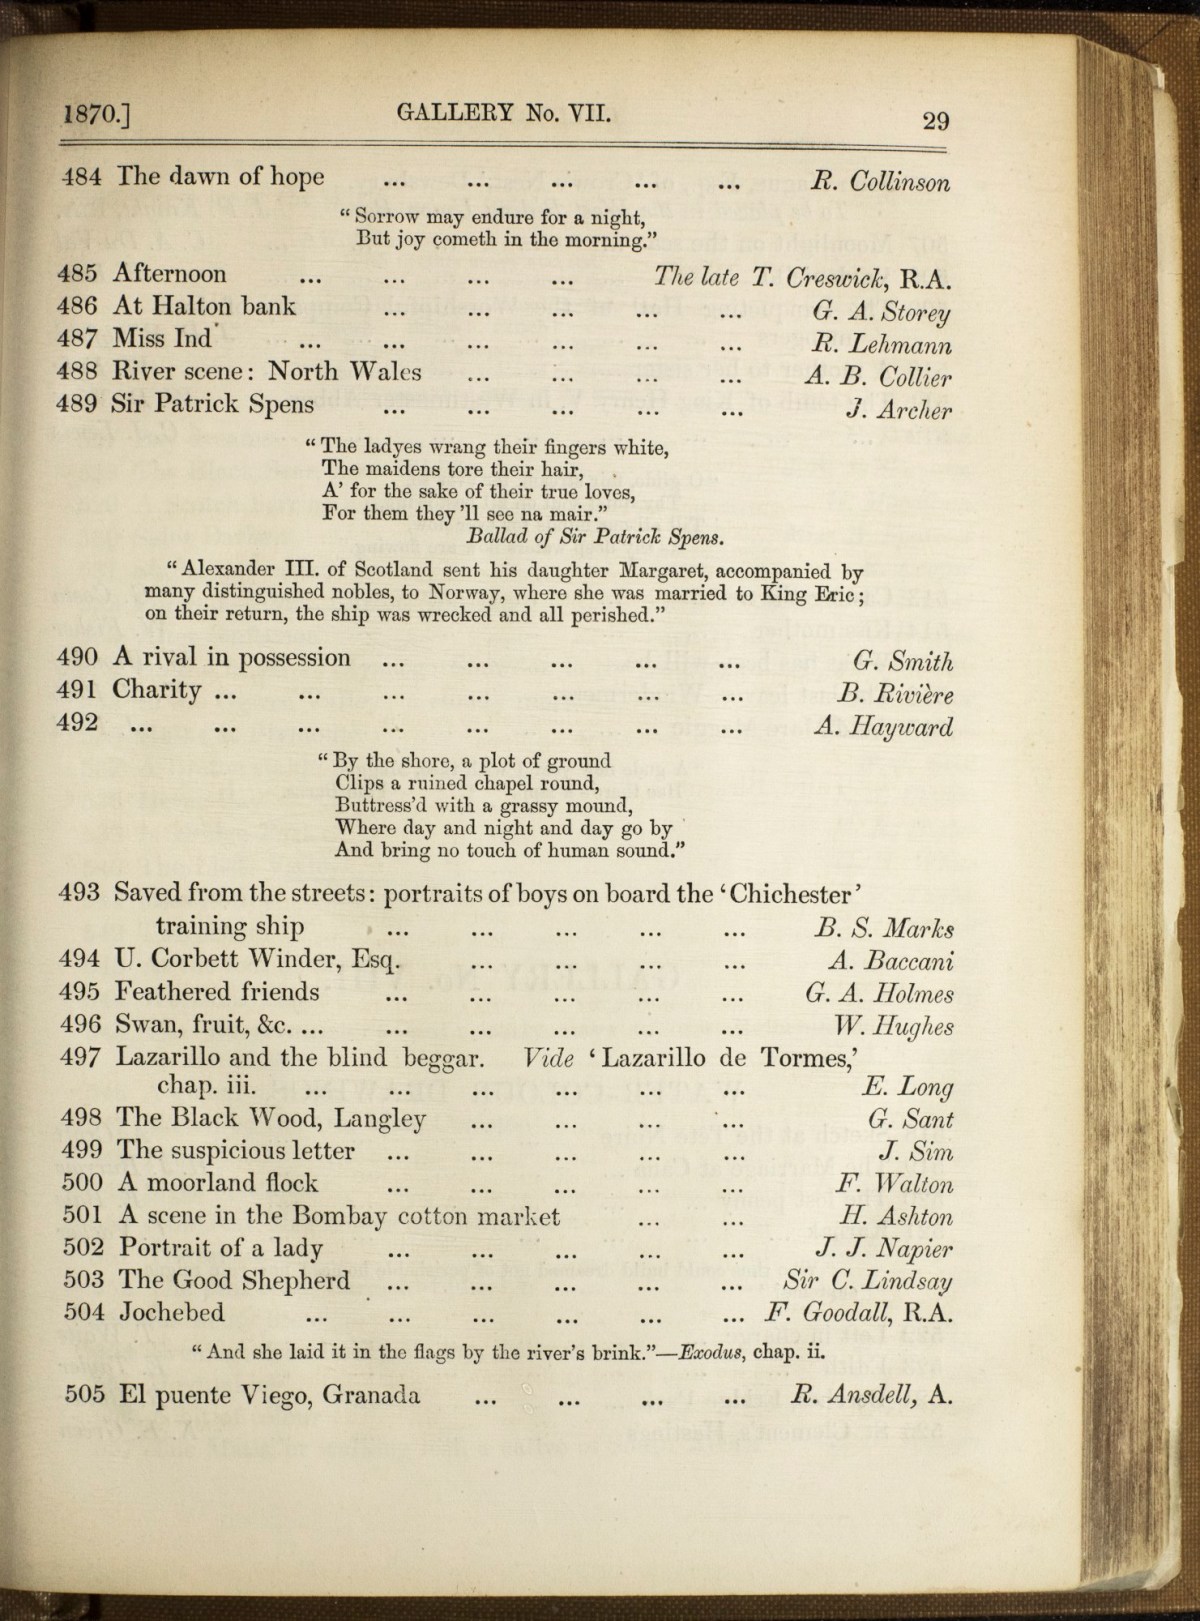 1870.] GALLERY No. VII. 29
484 The dawn of hope ... ... ... ... ... R. Collinson
“Sorrow may endure for a night,
But joy cometh in the morning.”
485 Afternoon ... ... ... ... The late T. Creswick, R.A.
486 At Halton bank ... ... ... ... ... G. A. Storey
487 Miss Ind ... ... ... ... ... ... R. Lehmann
488 River scene: North Wales ... ... ... ... A. B. Collier
489 Sir Patrick Spens ... ... ... ... ... J. Archer
“The ladyes wrang their fingers white,
The maidens tore their hair,
A’ for the sake of their true loves,
For them they ’ll see na mair.”
Ballad of Sir Patrick Spens.
“Alexander III. of Scotland sent his daughter Margaret, accompanied by
many distinguished nobles, to Norway, where she was married to King Eric;
on their return, the ship was wrecked and all perished.”
490 A rival in possession ... ... ... ... ... G. Smith
491 Charity ... ... ... ... ... ... ... B. Rivière
492 ... ... ... ... ... ... ... ... A. Hayward
“By the shore, a plot of ground
Clips a ruined chapel round,
Buttress’d with a grassy mound,
Where day and night and day go by
And bring no touch of human sound.”
493 Saved from the streets: portraits of boys on board the ‘Chichester’
training ship ... ... ... ... ... B. S. Marks
494 U. Corbett Winder, Esq. ... ... ... ... A. Baccani
495 Feathered friends ... ... ... ... ... G. A. Holmes
496 Swan, fruit, &c. ... ... ... ... ... ... W. Hughes
497 Lazarillo and the blind beggar. Vide ‘Lazarillo de Tormes,’
chap. iii. ... ... ... ... ... ... E. Long
498 The Black Wood, Langley ... ... ... ... G. Sant
499 The suspicious letter ... ... ... ... ... J. Sim
500 A moorland flock ... ... ... ... ... F. Walton
501 A scene in the Bombay cotton market ... ... H. Ashton
502 Portrait of a lady ... ... ... ... ... J. J. Napier
503 The Good Shepherd ... ... ... ... ... Sir C. Lindsay
504 Jochebed ... ... ... ... ... ... F. Goodall, R.A.
“And she laid it in the flags by the river’s brink.”—Exodus, chap. ii.
505 El puente Viego, Granada ... ... ... ... R. Ansdell, A.